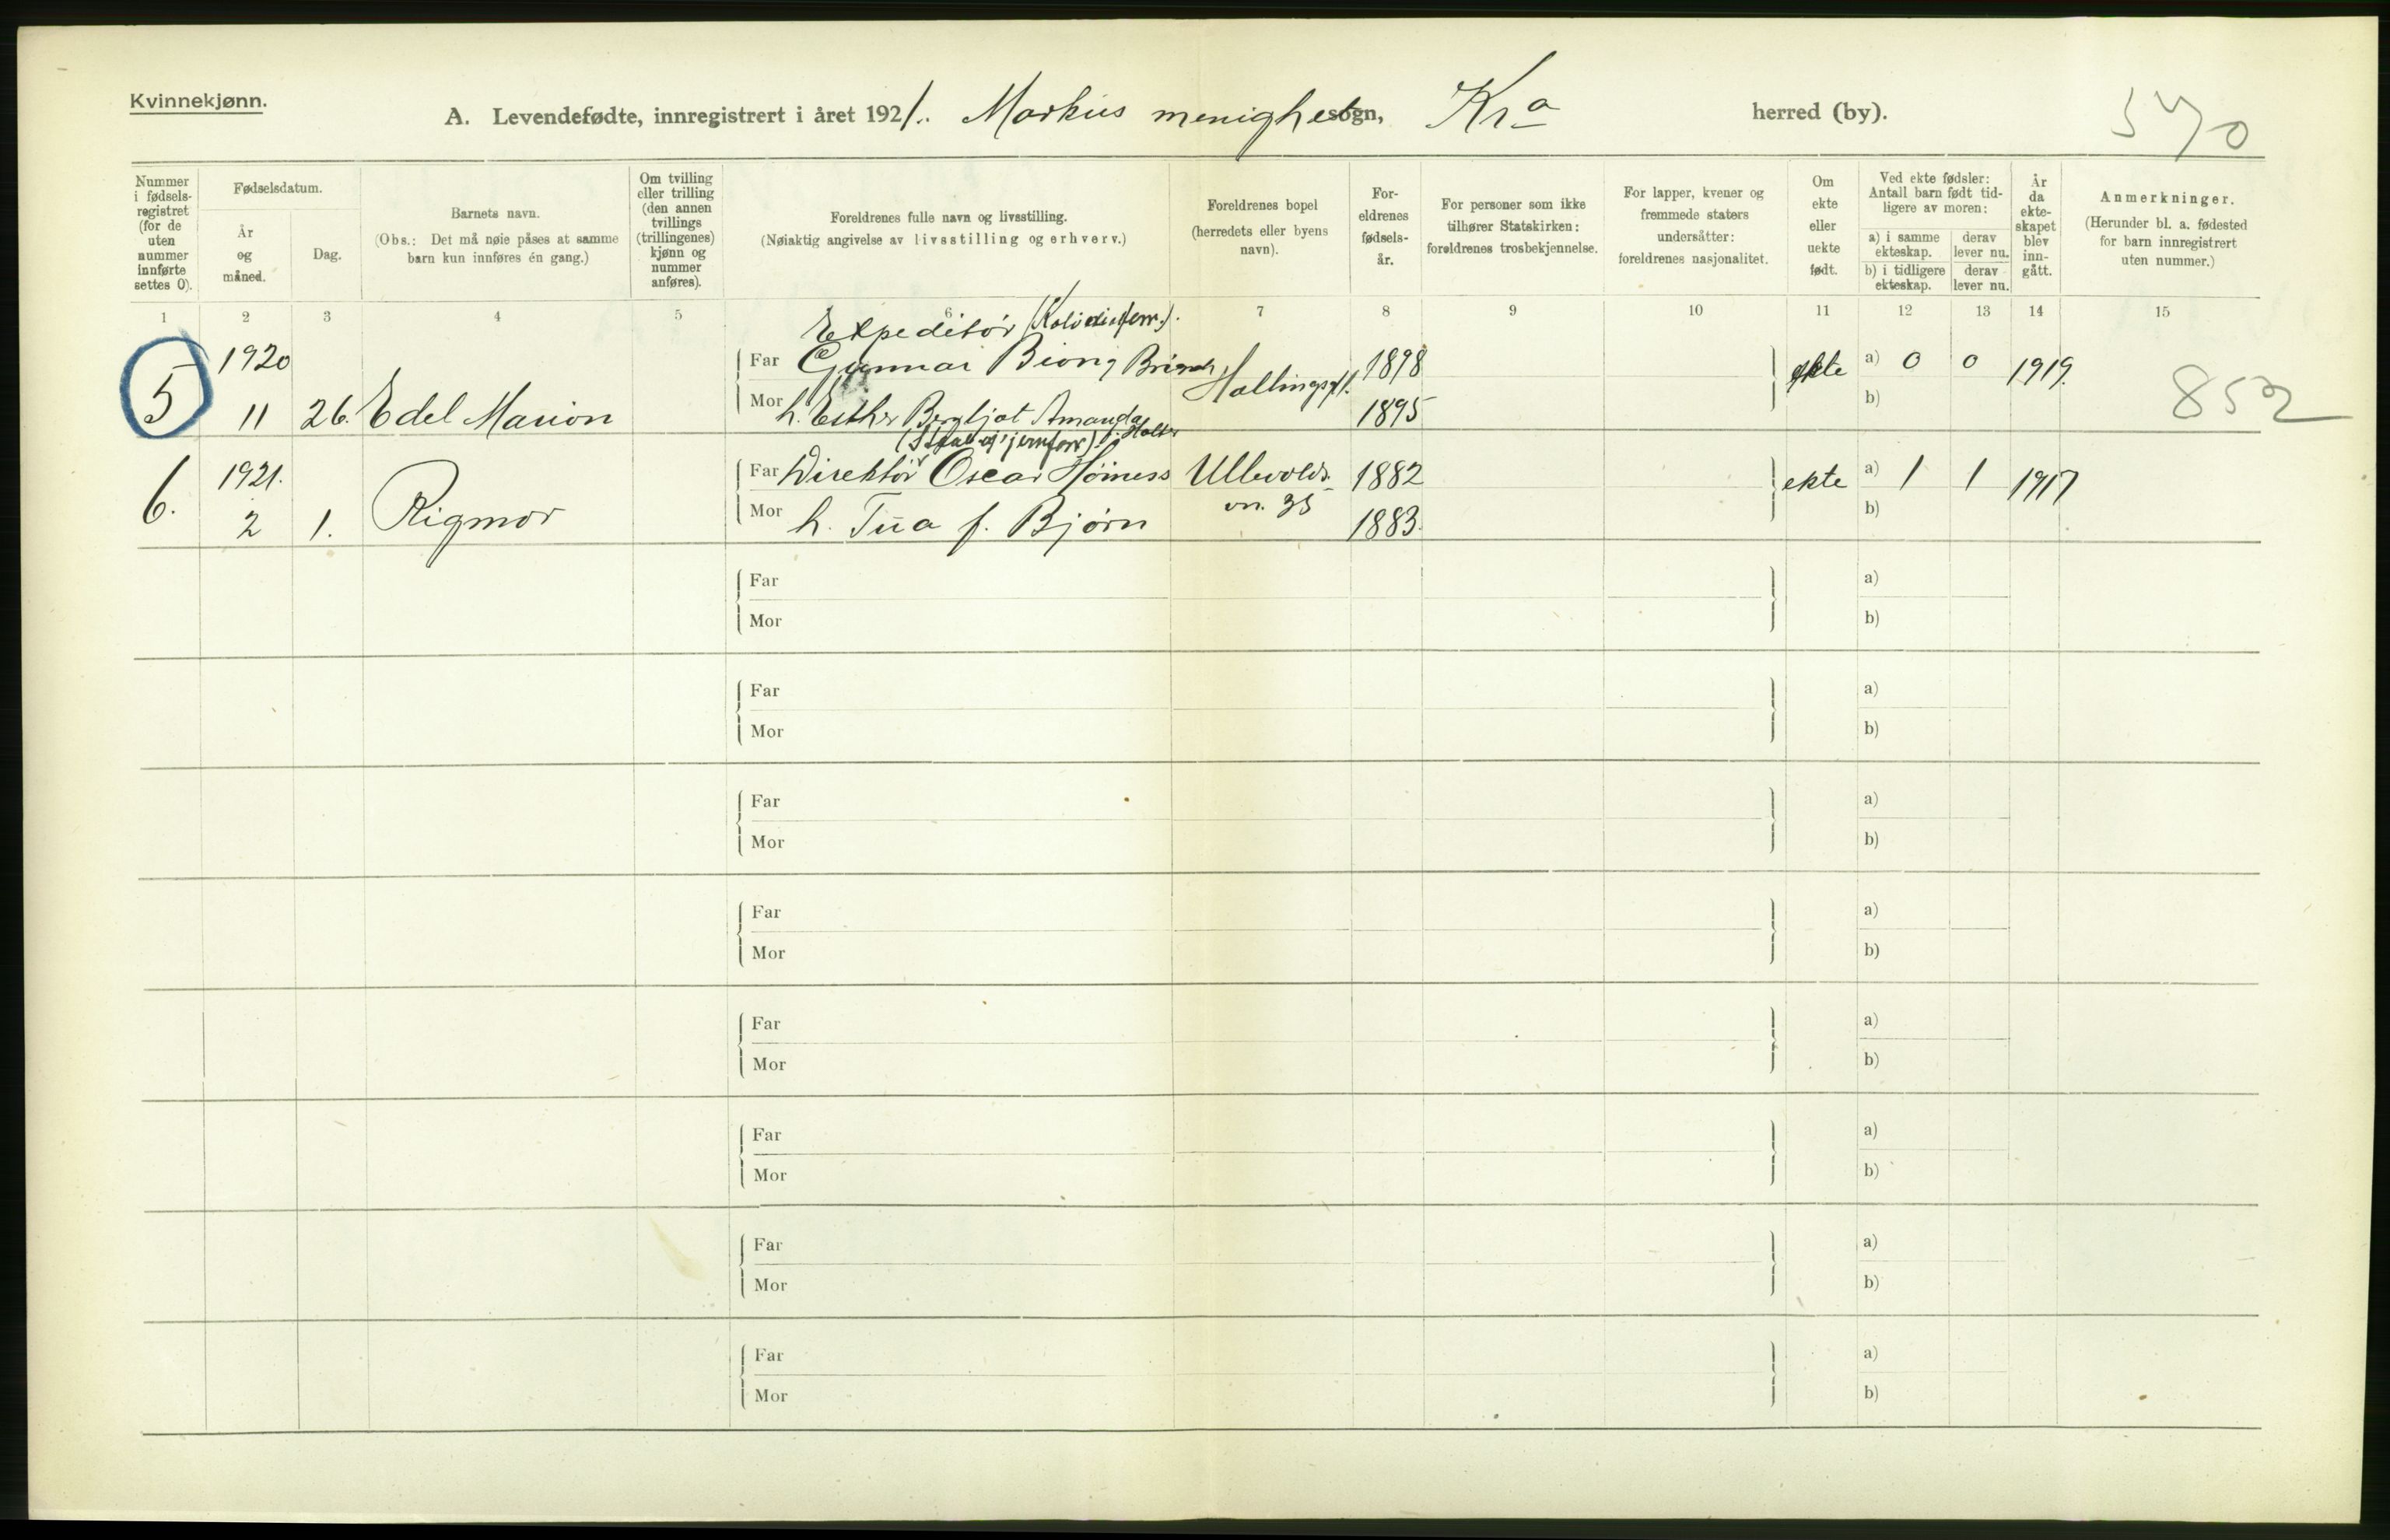 Kvinnekjønn.
A. Levendefødte, innregistrert i året 1921. Markus menighet sogn, Kra herred (by).
540
Nummer i fødsels-registret (for de uten nummer innførte settes 0).
Fødselsdatum.
År og måned.
Dag.
Barnets navn.
(Obs.: Det må nøie påses at samme barn kun innføres én gang.)
Om tvilling eller trilling (den annen tvillings (trillingenes) kjønn og nummer anføres).
Foreldrenes fulle navn og livsstilling.
(Nøiaktig angivelse av livsstilling og erhverv.)
Foreldrenes bopel (herredets eller byens navn).
For-eldrenes fødsels-år.
For personer som ikke tilhører Statskirken: foreldrenes trosbekjennelse.
For lapper, kvener og fremmede staters undersåtter: foreldrenes nasjonalitet.
Om ekte eller uekte født.
Ved ekte fødsler: Antall barn født tid-ligere av moren:
a) i samme ekteskap.
derav lever nu.
b) i tidligere ekteskap.
derav lever nu.
År da ekte-skapet blev inn-gått.
Anmerkninger.
(Herunder bl. a. fødested for barn innregistrert uten nummer.)
1 2 3 4 5 6 7 8 9 10 11 12 13 14 15
Expeditør
5 1920 11 26. Edel Marion
Far Gunnar Biong
Mor h. Esther Bergljot Amanda f. Holter
Hallingsgt.
1898
1895
ekte a) 0 0 1919.
b)
852
6. 1921. 2 1. Rigmor
Far Direktør Oscar Høiness
Mor h. Tua f. Bjørn
Ullevolds-
vn. 35
1882
1883.
ekte a) 1 1 1917
b)
Far a)
Mor b)
Far a)
Mor b)
Far a)
Mor b)
Far a)
Mor b)
Far a)
Mor b)
Far a)
Mor b)
Far a)
Mor b)
Far a)
Mor b)